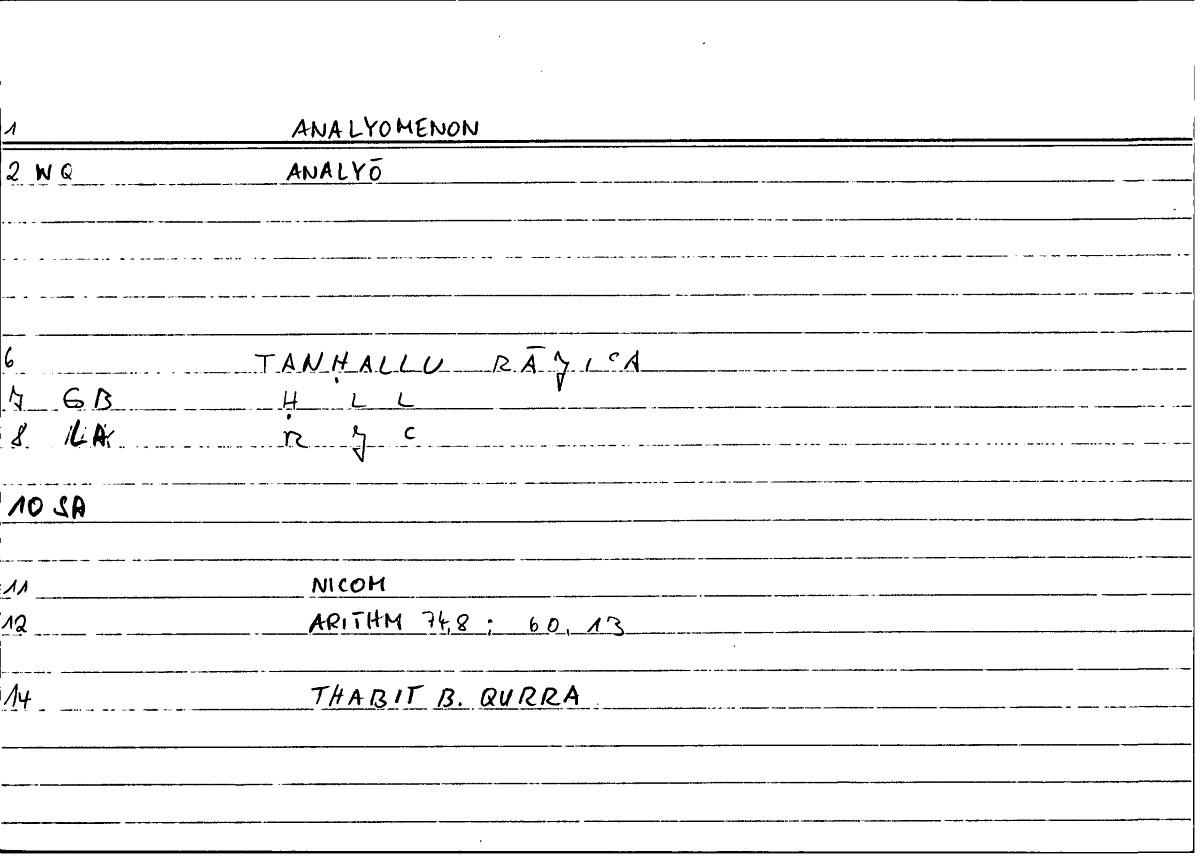 1 ANALYOMENON
2 WQ ANALYŌ
6 TANḤALLU RĀǦIʿA
7 GB Ḥ L L
8 LA R Ǧ ʿ
10 SA
11 NICOM
12 ARITHM 74,8 ; 60,13
14 THABIT B. QURRA